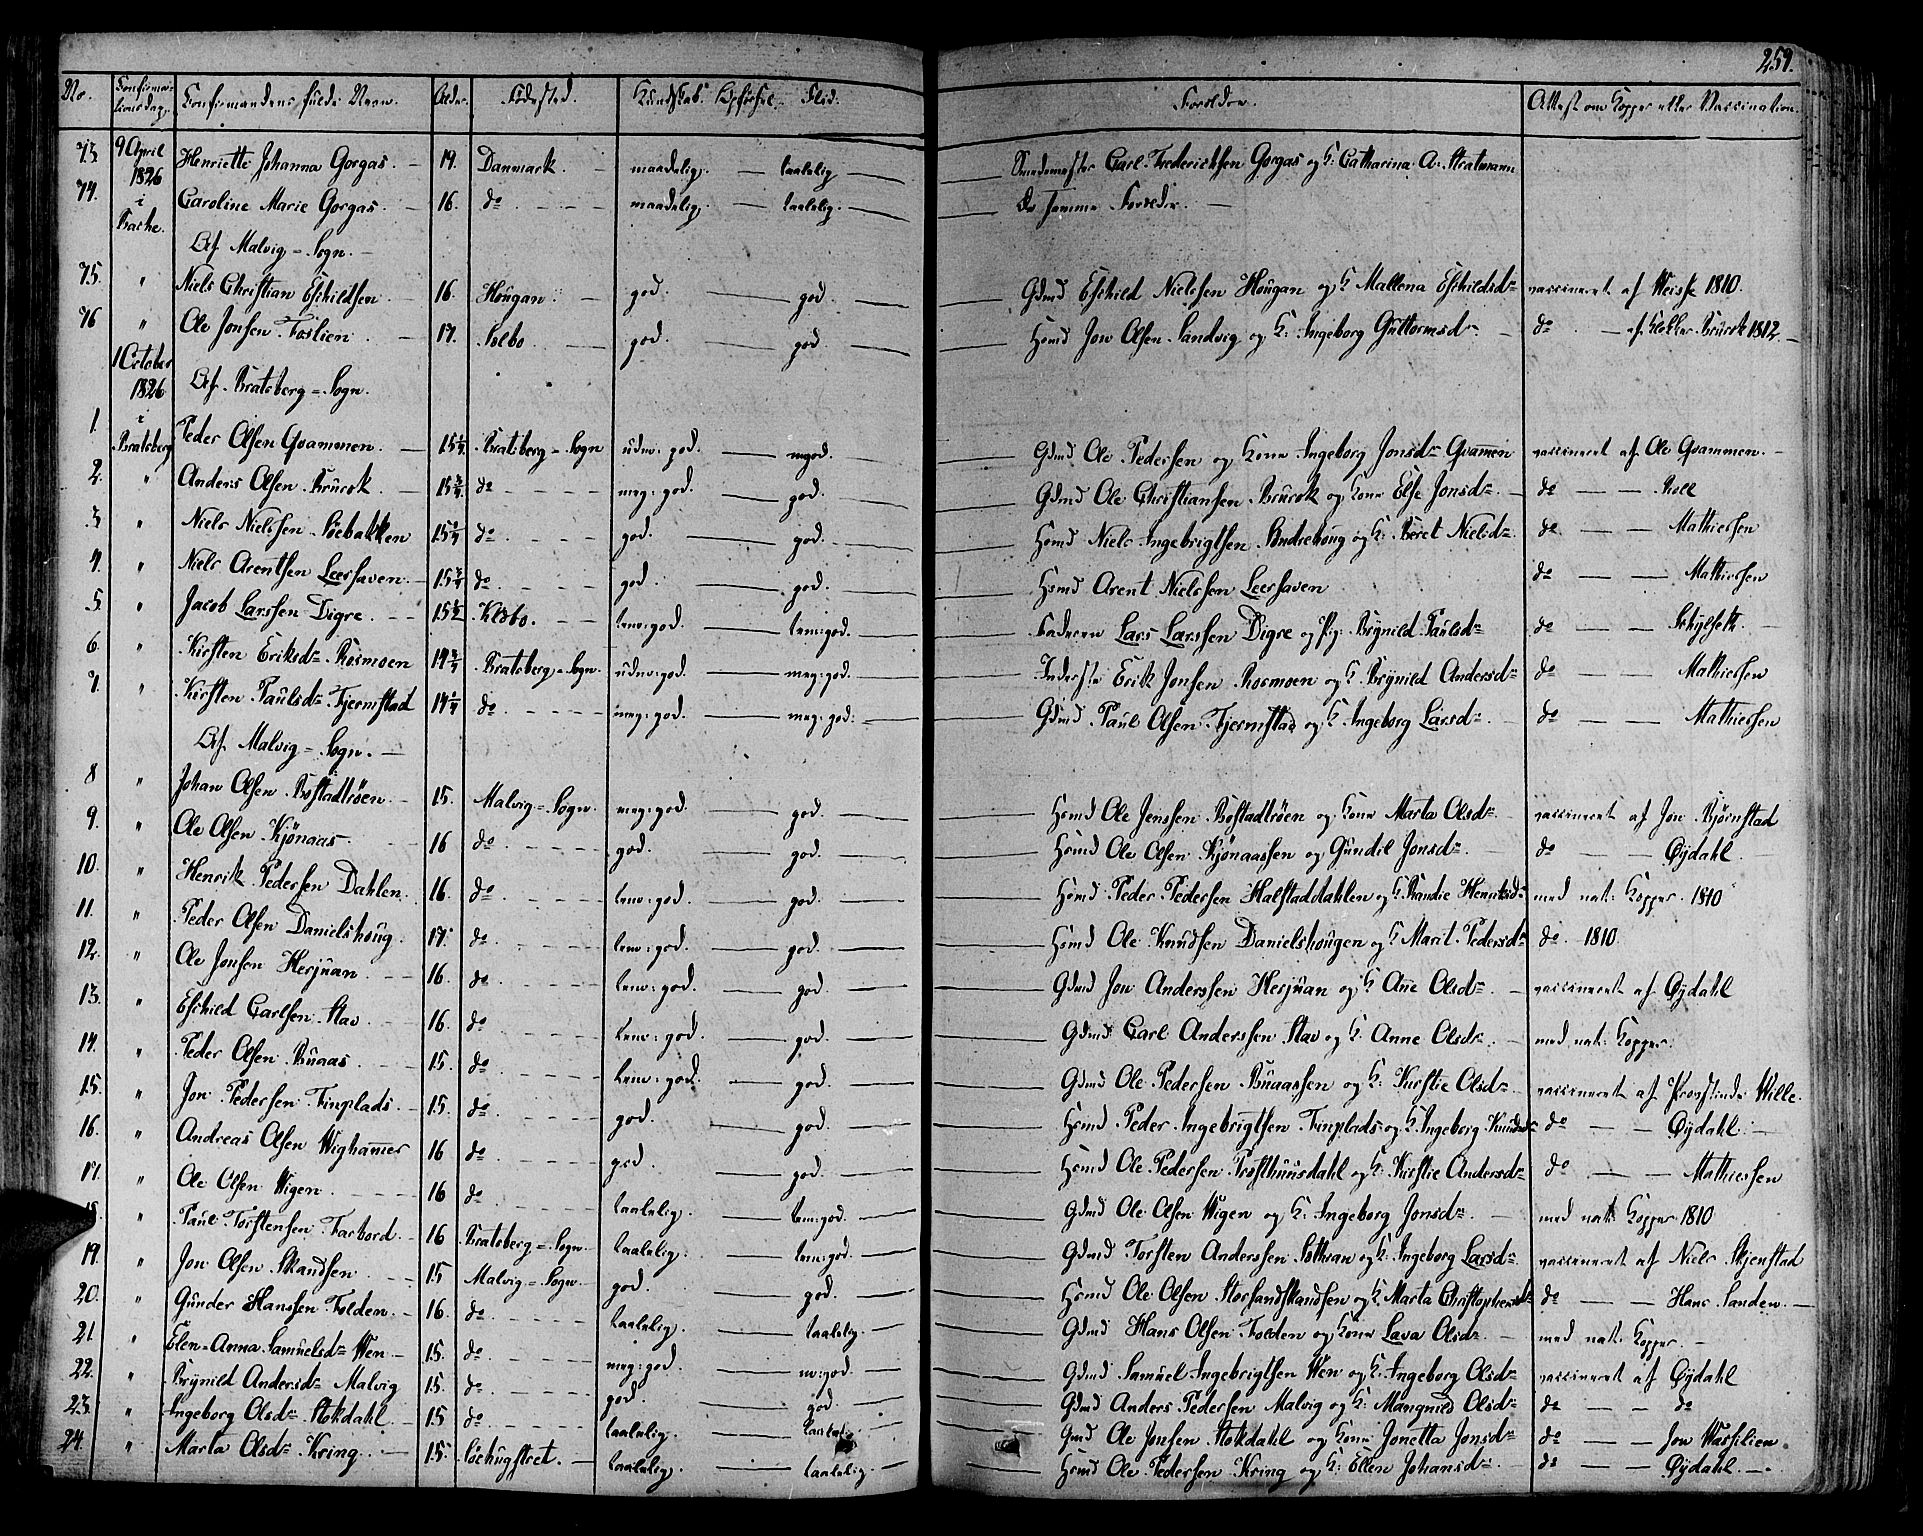 259.
No. Confirma-tionsdag. Confirmandens fulde Navn. Alder. Fødested. Kundskab. Opførsel. Flid. Forældre. Attest om Kopper eller Vaccination.
73. 9 April 1826 Henriette Johanna Gorgas. 19. Danmark. maadelig. taalelig Carl Frederichsen Gorgas og K: Catharina A. Stratmann
74. i Bache. Caroline Marie Gorgas. 16. do maadelig. taalelig. De samme Forældre.
Af Malvig-Sogn.
75. " Niels Christian Eschildsen 16. Hougan god. god. Gdmd Eschild Nielssen Hougan og K Mallena Eschildsdr vaccineret af Weisk 1810.
76 " Ole Jonsen Foslien 17. Selbo god. god. Hsmd Jon Olsen Sandvig og K: Ingeborg Guttormsdr do af Klokker Brurok 1812.
1 October 1826 Af Bratsberg-Sogn.
1. i Bratsberg Peder Olsen Qvammen. 15 1/4 Bratsberg-Sogn udm: god. mgod. Gdmd Ole Pedersen og Kone Ingeborg Jonsdr Qvamen vaccineret af Ole Qvammen.
2. " Anders Olsen Brurok 15 3/4 do meg: god. god. Gdmd Ole Christiansen Brurok og Kone Else Jonsdr do Roll
3 " Niels Nielssen Söebakken do god. god. Hsmd Niels Ingebrigtsen og K: Beret Nielsdr do Mathiessen
4. " Niels Arentsen Leershaven 15 3/4 do god. god. Hsmd Arent Nielssen Leershaven do Mathiessen
5. " Jacob Larssen Digre. 15 1/2 Klæbo. tem: god. tem: god. Lars Larssen Digre og Pig: Brynild Paulsdr do
6. " Kirsten Eriksdr Rosmoen 14 3/4 Bratsberg-Sogn. udm: god. meg: god. Inderste Erik Jonsen Rosmoen og K Brynild Andersdr do Mathiessen
7. " Kirsten Paulsdr Tjermstad do meg: god. meg: god: Gdmd Paul Olsen Tjermstad og K. Ingeborg Larsdr do Mathiessen
Af Malvig-Sogn.
8 " Johan Olsen Bostadtröen 15. Malvig-Sogn. meg: god. god. Hsmd Ole Jenssen Bostadtröen og Kone Marta Olsdr vaccineret af Jon Björnstad
9. " Ole Olsen Kjönaas 16 do god. god. Hsmd Ole Olsen Kjönaassen og Gundil Jonsdr do Öydahl
10. " Henrik Pedersen Dahlen. 16. do tem: god. god. Hsmd Peder Pedersen Halstaddahlen og K Randie Henriksdr med nat: Kopper. 1810
11. " Peder Olsen Danielshoug. 17. do tem: god. god. Hsmd Ole Knudsen Danielshougen og K Marit Pedersdr do 1810
12. " Ole Jonsen Herjuan 16. do tem: god. god. Gdmd Jon Anderssen Herjuan og K Ane Olsdr vaccineret af Öydahl
13. " Eschild Carlsen Stav 16. do tem: god. god. Gdmd Carl Anderssen Stav og K. Anne Olsdr med nat: Kopper.
14. " Peder Olsen Buaas 15. do tem: god. god. Gdmd Ole Pedersen Buaassen og K: Kirstie Olsdr vaccineret af Provstinde Wille.
15. " Jon Pedersen Finplads. 15. do god. god. Hsmd Peder Ingebrigtsen Finplads og K. Ingeborg Knudsdr do Öydahl.
16. " Andreas Olsen Wighamer 16 do god. god. Hsmd Ole Pedersen og K: Kirstie Andersdr do Mathiessen
17. " Ole Olsen Wigen. 16 do taalelig. tem: god. Gdmd Ole Olsen Wigen og K: Ingeborg Jonsdr med nat: Kopper 1810
18. " Paul Torstensen Farbord. 16 Bratsberg-Sogn. taalelig. tem: god. Gdmd Torsten Anderssen og K: Ingeborg Larsdr vaccineret af Niels Skjenstad
19. " Jon Olsen Skandsen 15 Malvig-Sogn. god. god. Hsmd Ole Olsen Storsandskandsen og K. Marta Christophersdr do Hans Sanden.
20. " Gunder Hanssen Folden. 16. do taalelig. taalelig. Gdmd Hans Olsen Folden og Kone Lava Olsdr med nat: Kopper
21 " Elen-Anna Samuelsdr Wen 15. do meg: god. m: god. Gdmd Samuel Ingebrigtsen Wen og K: Ingeborg Olsdr vaccineret af Öydahl
22. " Brynild Andersdr Malvig 15. do god. god. Gdmd Anders Pedersen Malvig og K: Mangnild Olsdr do do
23. " Ingeborg Olsdr Stokdahl 15 do taalelig. Gmd Ole Jonsen Stokdahl og Kone Jonetta Jonsdr do Jon Hassilien.
24. " Marta Olsdr Kring. 15. taalelig. taalelig. Hsmd Ole Pedersen Kring og K: Ellen Johansdr do Öydahl.